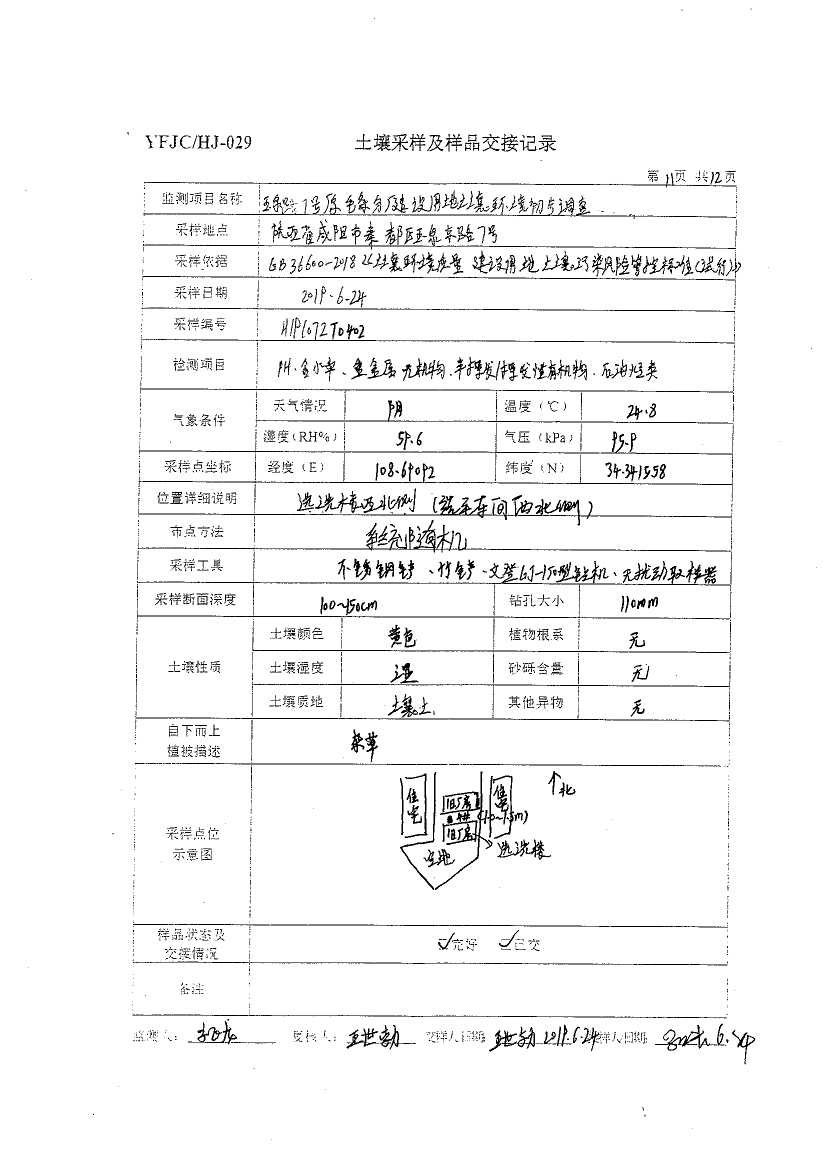 YFJC/HJ-029 土壤采样及样品交接记录
第11页 共12页
监测项目名称 7号原 分厂建设用地土壤环境初步调查
采样地点 陕西省咸阳市秦都区玉泉东路7号
采样依据 GB36600-2018《土壤环境质量 建设用地土壤污染风险管控标准(试行)》
采样日期 2019.6.24
采样编号 H1P1072T0402
检测项目 PH、含水率、重金属无机物、半挥发/挥发性有机物、石油烃类
气象条件 天气情况 阴 温度(℃) 24.8
湿度(RH%) 59.6 气压(kPa) 95.9
采样点坐标 经度(E) 108.69092 纬度(N) 34.341558
位置详细说明 选洗楼西北侧(络系车间西北侧)
布点方法 系统随机
采样工具 不锈钢铲、竹铲、文登GJ-150型钻机、无扰动取样器
采样断面深度 100~150cm 钻孔大小 110mm
土壤性质 土壤颜色 黄色 植物根系 无
土壤湿度 湿 砂砾含量 无
土壤质地 土壤土 其他异物 无
自下而上
植被描述 杂草
采样点位
示意图
↑北
住宅 旧厂房 住宅
(1.0~1.5m)
旧厂房
空地 选洗楼
样品状态及
交接情况 ☑完好 ☑已交
备注
监测人: 复核人: 王世勃 交样人日期: 王世勃 2019.6.24 样人日期: 6.24